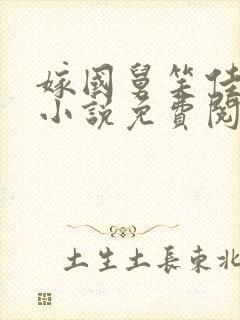 嫁國舅笑佳
小說免費閱
土生土長東北